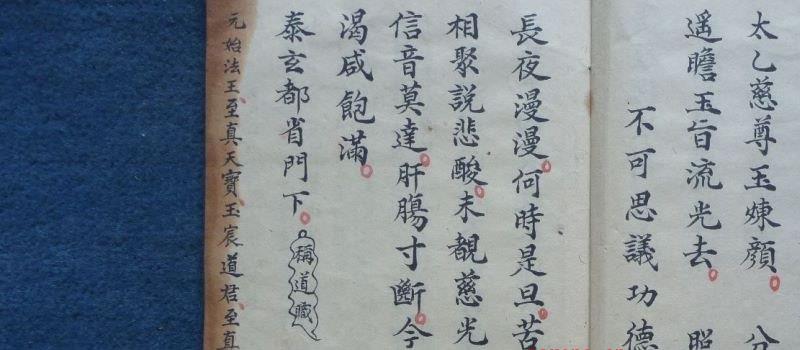 太乙慈尊玉煉顔 分
遥瞻玉旨流光去 照
不可思議功德
長夜漫漫何時是旦苦
相聚說悲酸未覩慈光
信音莫達肝腸寸斷今
渴咸飽滿
泰玄都省門下 稱道職
元始法王至真天寶玉宸道君至真